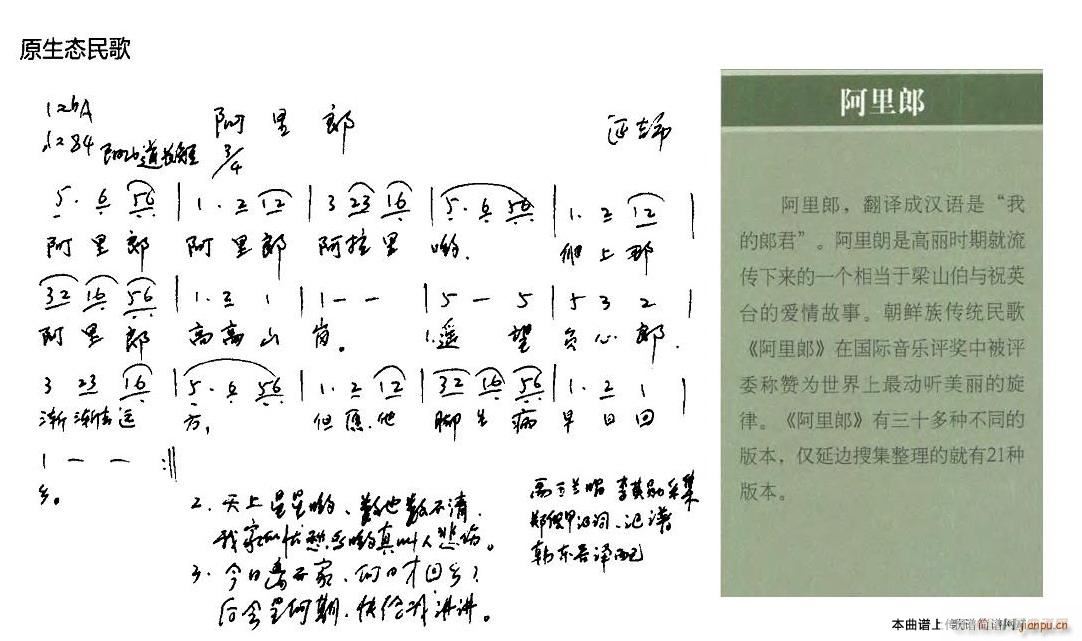 原生态民歌
1=bA
阿里郎
3/4
5. 6 56 | 1. 2 12 | 3 23 16 | 5. 6 56 | 1. 2 12 |
阿里郎 阿里郎 阿拉里 哟. 他上那
32 16 56 | 1. 2 1 | 1 - - | 5 - 5 | 5 3 2 |
阿里郎 高高山 岗。 1.遥望 负心郎.
3 23 16 | 5. 6 56 | 1. 2 12 | 32 16 56 | 1. 2 1 |
渐渐去远 方, 但愿他 脚生病 早日回
1 - - :‖
乡。
2. 天上星星哟、数也数不清.
我家的忧愁哟真叫人悲伤。
3. 今日离开家.何日才回乡?
后会是何期.快给我讲讲。
李其勋采集
汉词、记谱
韩东吾译配
阿里郎
阿里郎，翻译成汉语是“我
的郎君”。阿里朗是高丽时期就流
传下来的一个相当于梁山伯与祝英
台的爱情故事。朝鲜族传统民歌
《阿里郎》在国际音乐评奖中被评
委称赞为世界上最动听美丽的旋
律。《阿里郎》有三十多种不同的
版本，仅延边搜集整理的就有21种
版本。
本曲谱上传于 简谱网 jianpu.cn